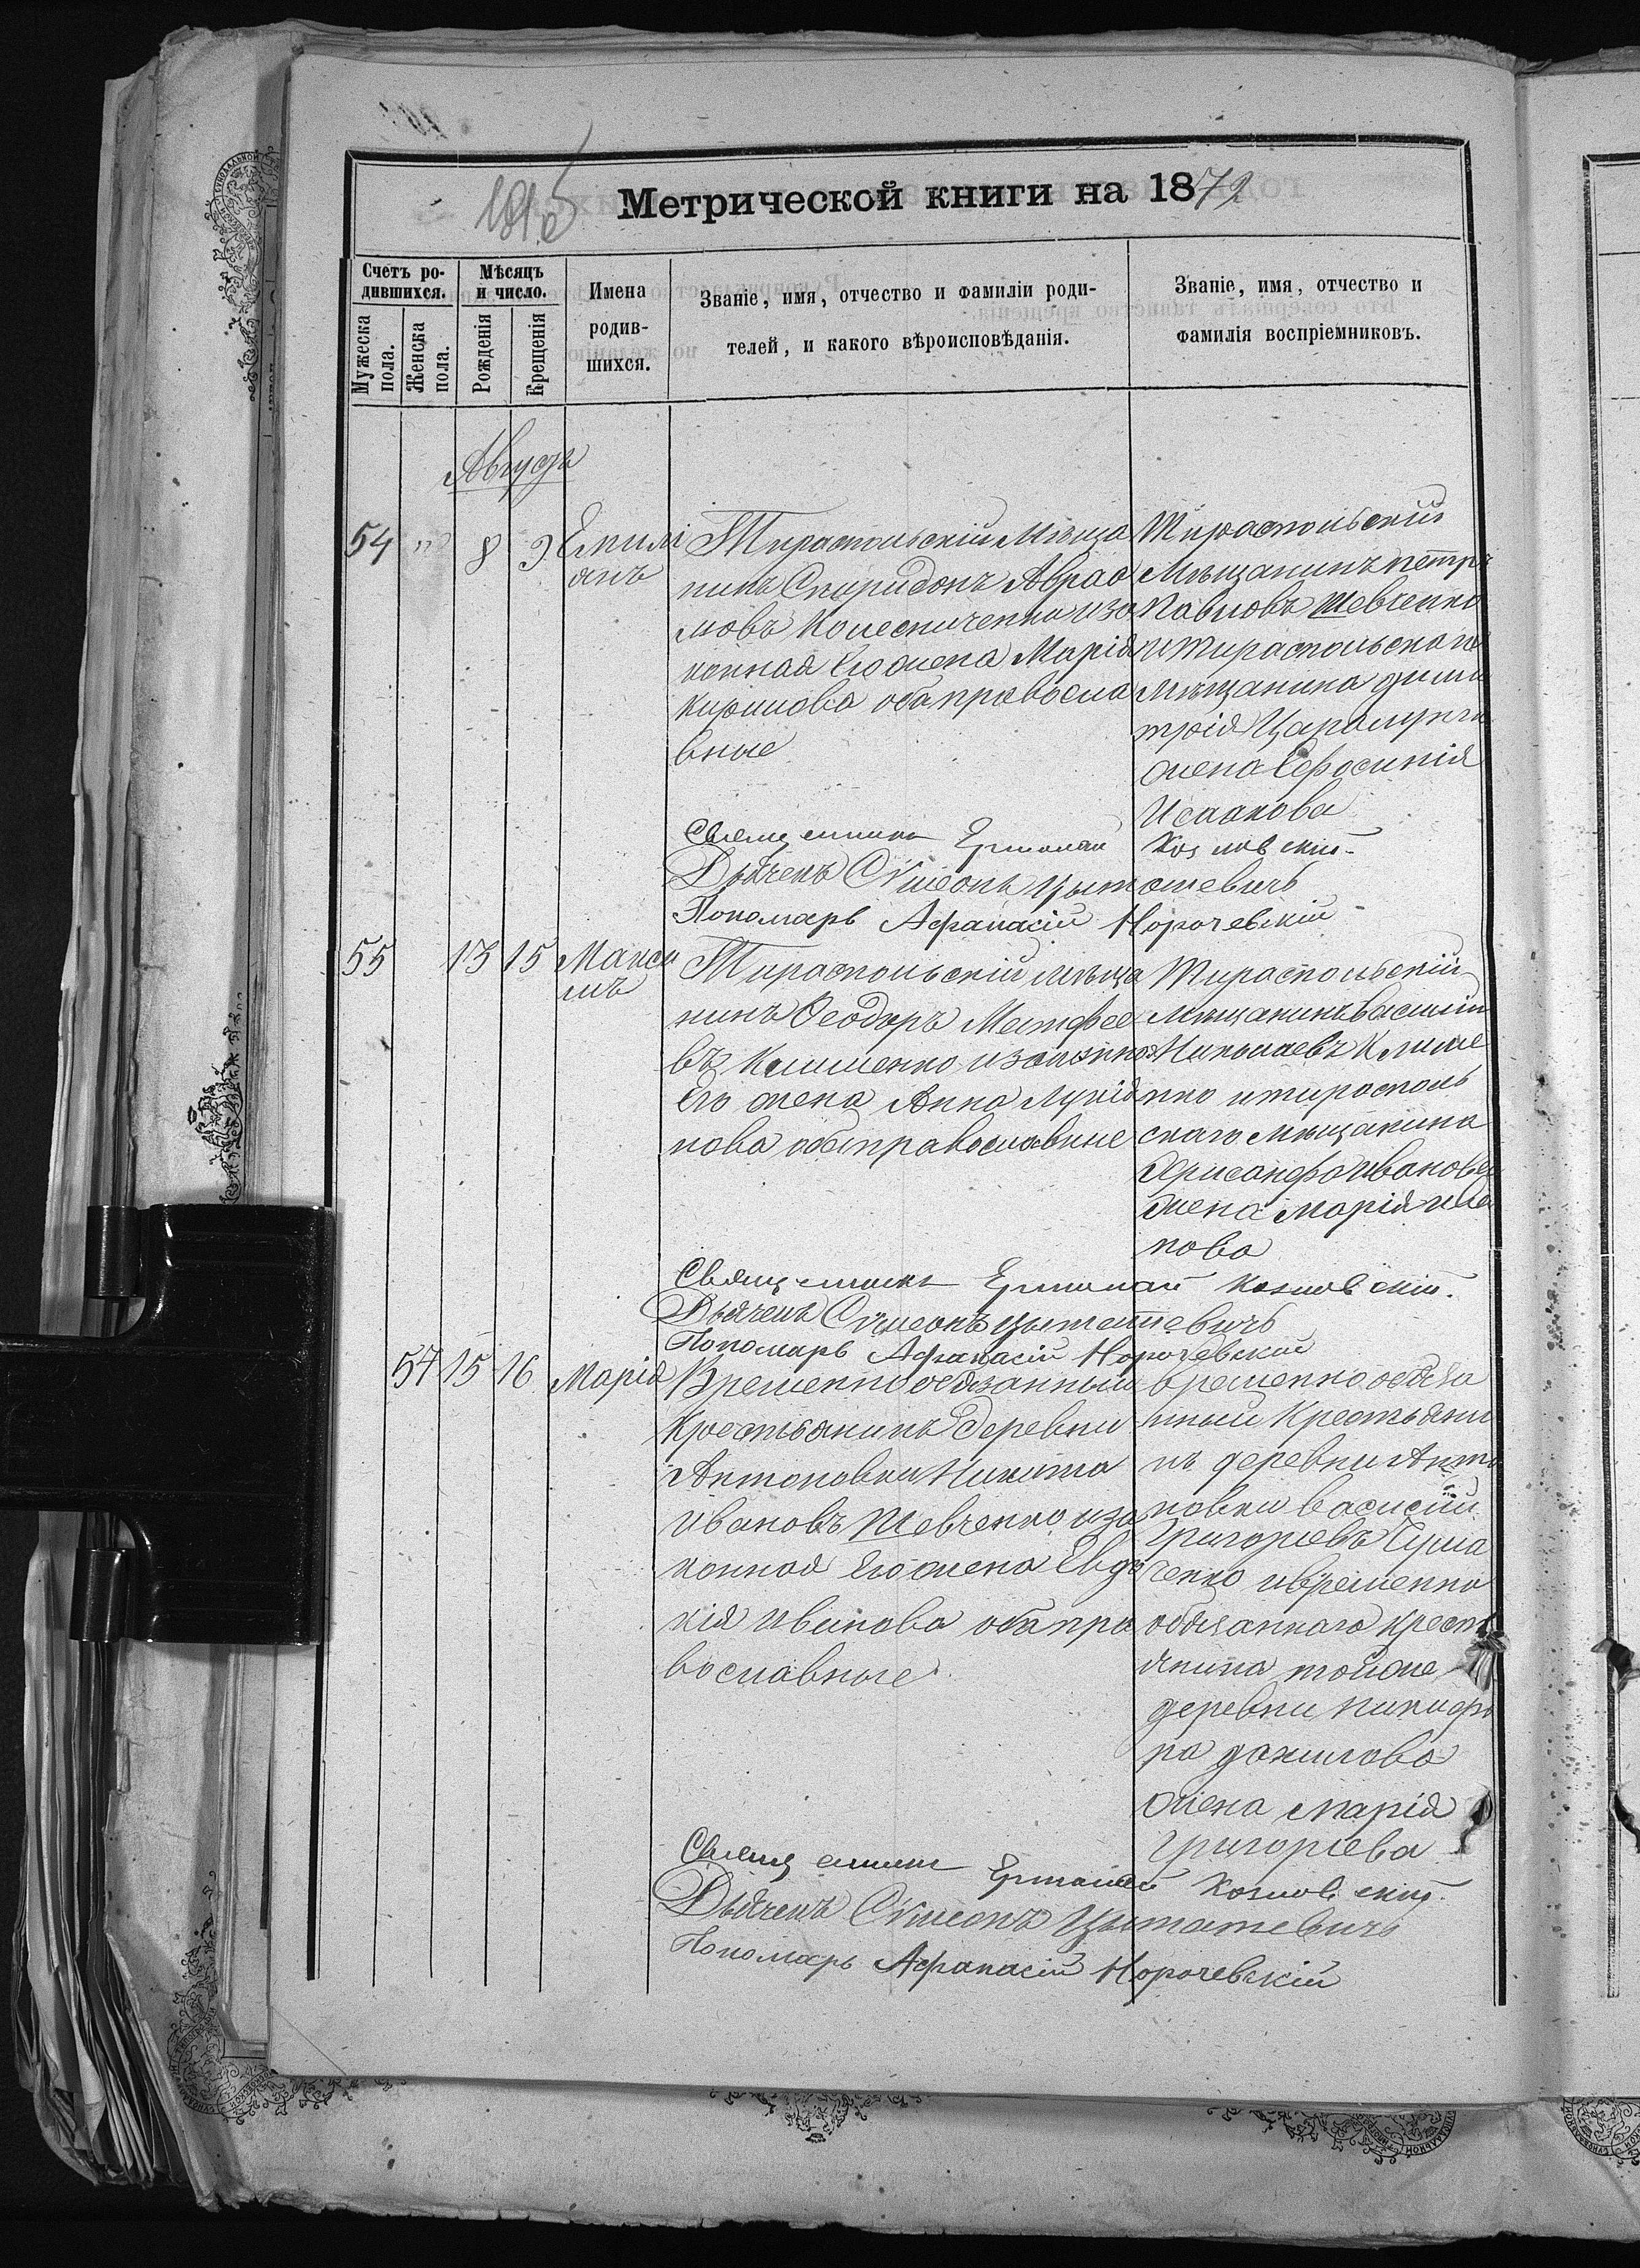 Метрической книги на 1872
Счетъ ро-
дившихся.
Мужеска
пола.
Женска
пола.
Мѣсяцъ
и число.
Рожденія
Крещенія
Имена
родив-
шихся.
Званіе, имя, отчество и фамиліи роди-
телей, и какого вѣроисповѣданія.
Званіе, имя, отчество и
фамилія воспріемниковъ.
Августъ
54 " 8 9
Емилі
анъ
Тираспольскій мѣща
нинъ Спиридонъ Аврао
мовъ Колесниченко изо
конная его жена Марія
Кирилова оба правосла
вные
Тираспольскій
мѣщанинъ петръ
Павловъ Шевченко
и тираспольскаго
мѣщанина дими
трія
жена Ефросинія
Исаакова
Священникъ Ермолай Козловскій.
Дьячекъ Сѵмеонъ Цытошевичъ
Пономарь Афанасій Норочевскій
55 13 15
Макси
мъ
Тираспольскій мѣща
нинъ Ѳеодоръ Матфее
въ Клименко и законная
его жена Анна Лукія
нова оба православные
Тираспольскій
мѣщанинъ василій
Николаевъ Климе
нко и тирасполь
скаго мѣщанина
Хрисанфа Иванова
жена Марія
нова
Священникъ Ермолай Козловскій.
Дьячекъ Сѵмеонъ Цытошевичъ
Пономарь Афанасій Норочевскій
57 15 16
Марія
Временнообязанный
крестьянинъ деревни
Антоновки Никита
Ивановъ Шевченко изо
конная его жена Евдо
кія Иванова оба пра
вославные
временнообяза
нный крестьяни
нъ деревни Анто
новки василій
Григорьевъ
ченко и временно
обязаннаго кресть
янина тойже
деревни никифо
ра данилова
жена Марія
Григоріева
Священникъ Ермолай Козловскій.
Дьячекъ Сѵмеонъ Цытошевичъ
Пономарь Афанасій Норочевскій